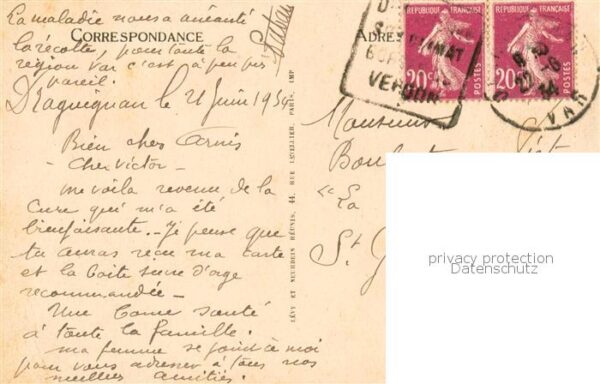 La maladie nous a anéanti
la récolte, pour toute la
région Var c'est à peu près
pareil.
CORRESPONDANCE
Draguignan le 21 Juin 1934
Bien chers Amis
Cher Victor -
me voila revenu de la
Cure qui m'a été
bienfaisante. - Je pense que
tu auras reçu ma carte
et la boite sucre d'orge
recommandée -
Une bonne santé
à toute la famille.
ma femme se joint à moi
pour vous adresser à tous nos
meilleurs amitiés.
LÉVY ET NEURDEIN RÉUNIS, 44, RUE LETELLIER, PARIS, IMP
ADRES
REPUBLIQUE FRANÇAISE
20c
POSTES
REPUBLIQUE FRANÇAISE
20c
POSTES
VERDON
VAR
Monsieur
St G
privacy protection
Datenschutz